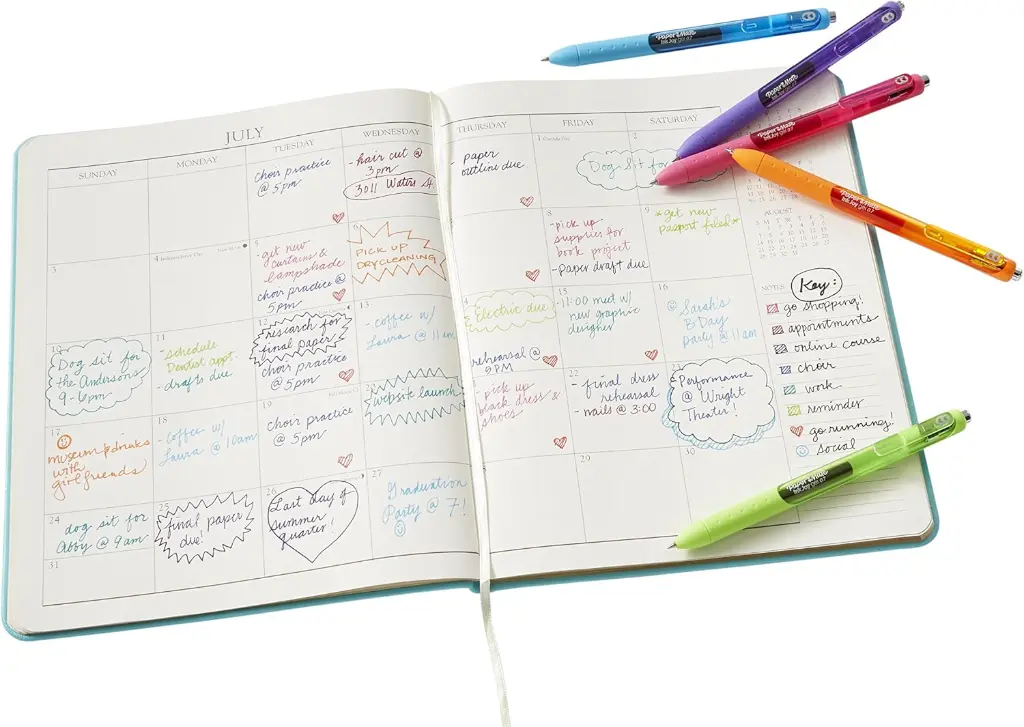 JULY
SUNDAY
MONDAY
TUESDAY
WEDNESDAY
THURSDAY
FRIDAY
SATURDAY
choir practice
@ 5pm
-hair cut @
3pm
3011 Waters St.
- paper
outline due
1
2
Dog Sit for
3
4
5
-get new
curtains &
lampshade
choir practice @
5pm
6
PICK UP
DRYCLEANING
8
-pick up
supplies for
book project
-paper draft due
9
*get new
pasport filed*
10
Dog sit for
the Andersons
9-6pm
11
-Schedule
Dentist appt.
-drafts due
12
research for
final paper
choir practice
@ 5pm
13
- coffee w/
Laura @ 11am
14
Electric due
rehearsal @
9PM
15
-11:00 meet w/
new graphic
designer
16
@ Sarah's
B-Day
party @ 11am
17
museum & drinks
with
girlfriends
18
-coffee w/
Laura @ 10am
19
choir practice
@ 5pm
20
website launch
-pick up
black dress &
shoes
22
-final dress
rehearsal
-nails @ 3:00
23
Performance
@ Wright
Theater!
24
dog sit for
Abby @ 9am
25
final paper
due!
26
Last day of
summer
quarter!
27
Graduation
Party @ 7!
29
30
31
AUGUST
S M T W T F S
NOTES
Key:
go shopping!
appointments
online course
choir
work
reminder
go running!
social
Paper Mate
InkJoy gel 0.7
Paper Mate
InkJoy gel 0.7
Paper Mate
InkJoy gel 0.7
Paper Mate
InkJoy gel 0.7
Paper Mate
InkJoy gel 0.7